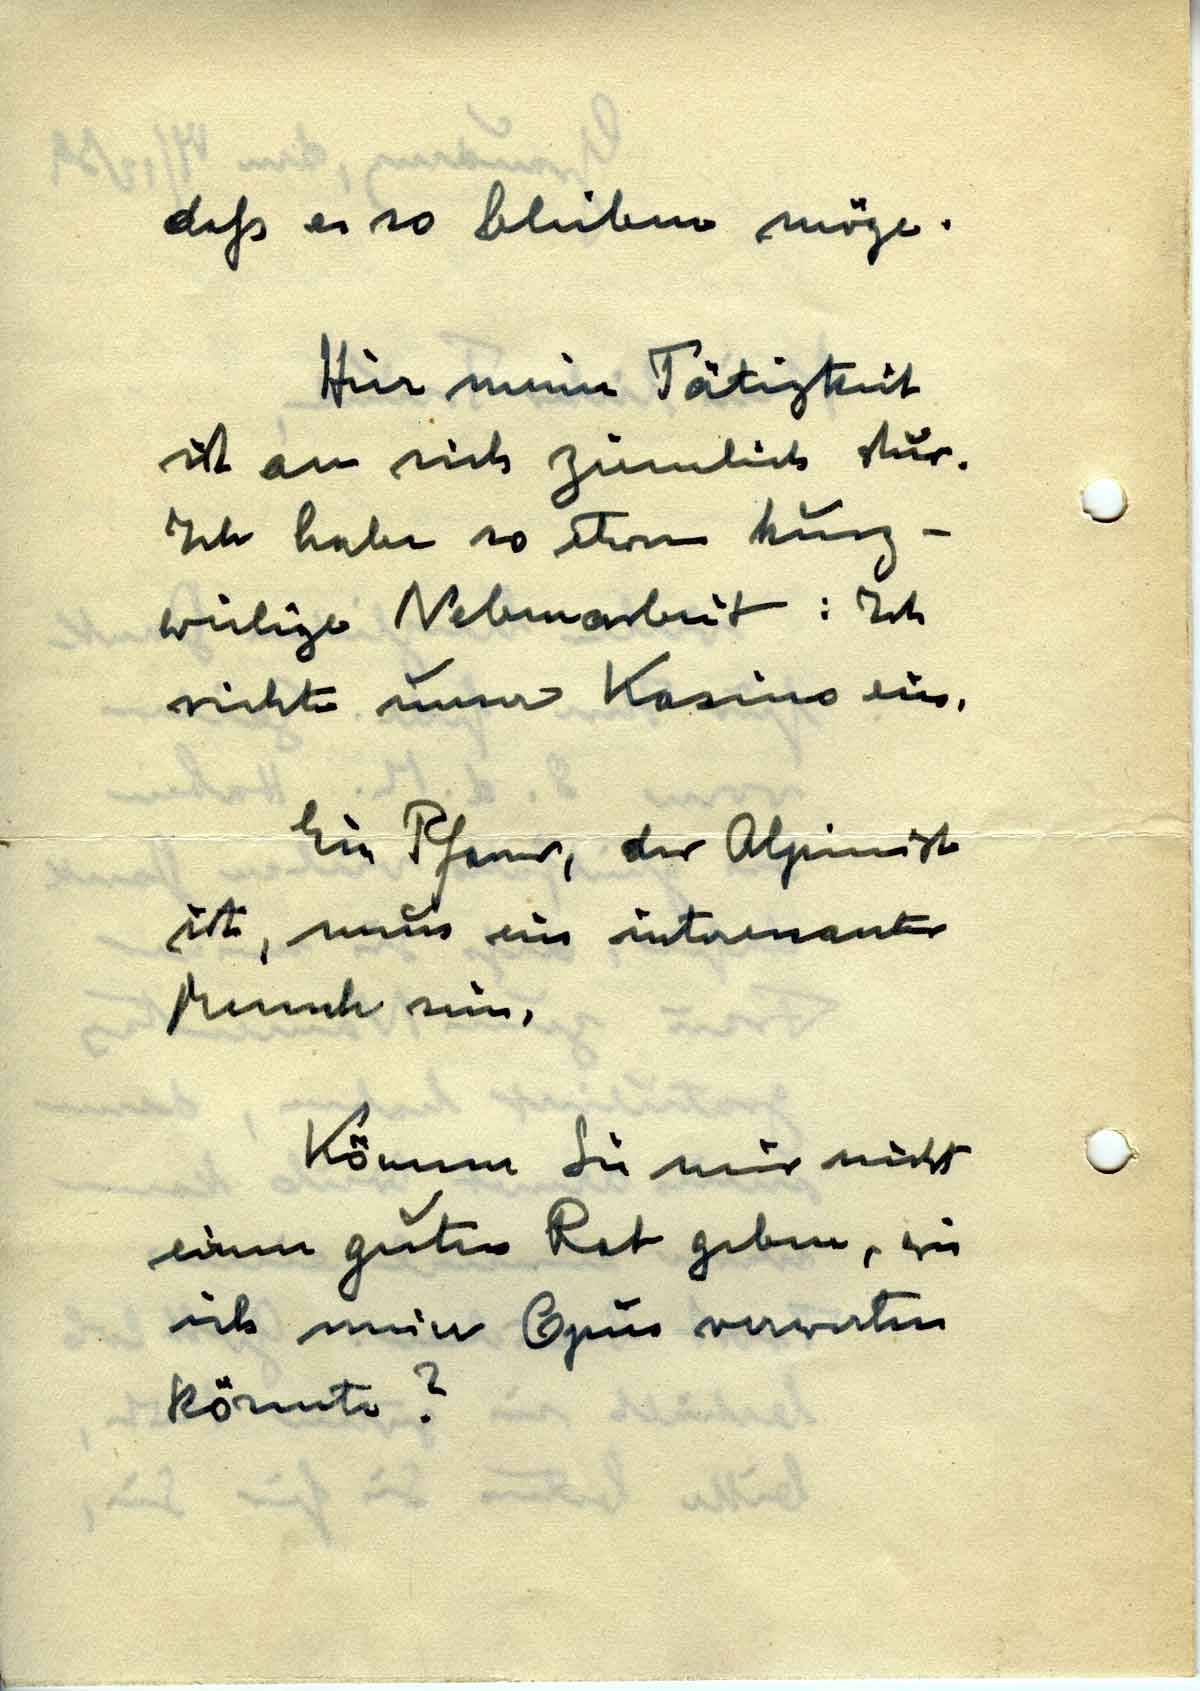 daß es so bleiben möge.
Hier meine Tätigkeit
ist an sich ziemlich stur.
Ich habe so etwas kurz-
weilige Nebenarbeit: Ich
richte unser Kasino ein.
Ein Pfarrer, der Alpinist
ist, muss ein interessanter
Mensch sein.
Können Sie mir nicht
einen guten Rat geben, wie
ich mein Opus verwerten
könnte?